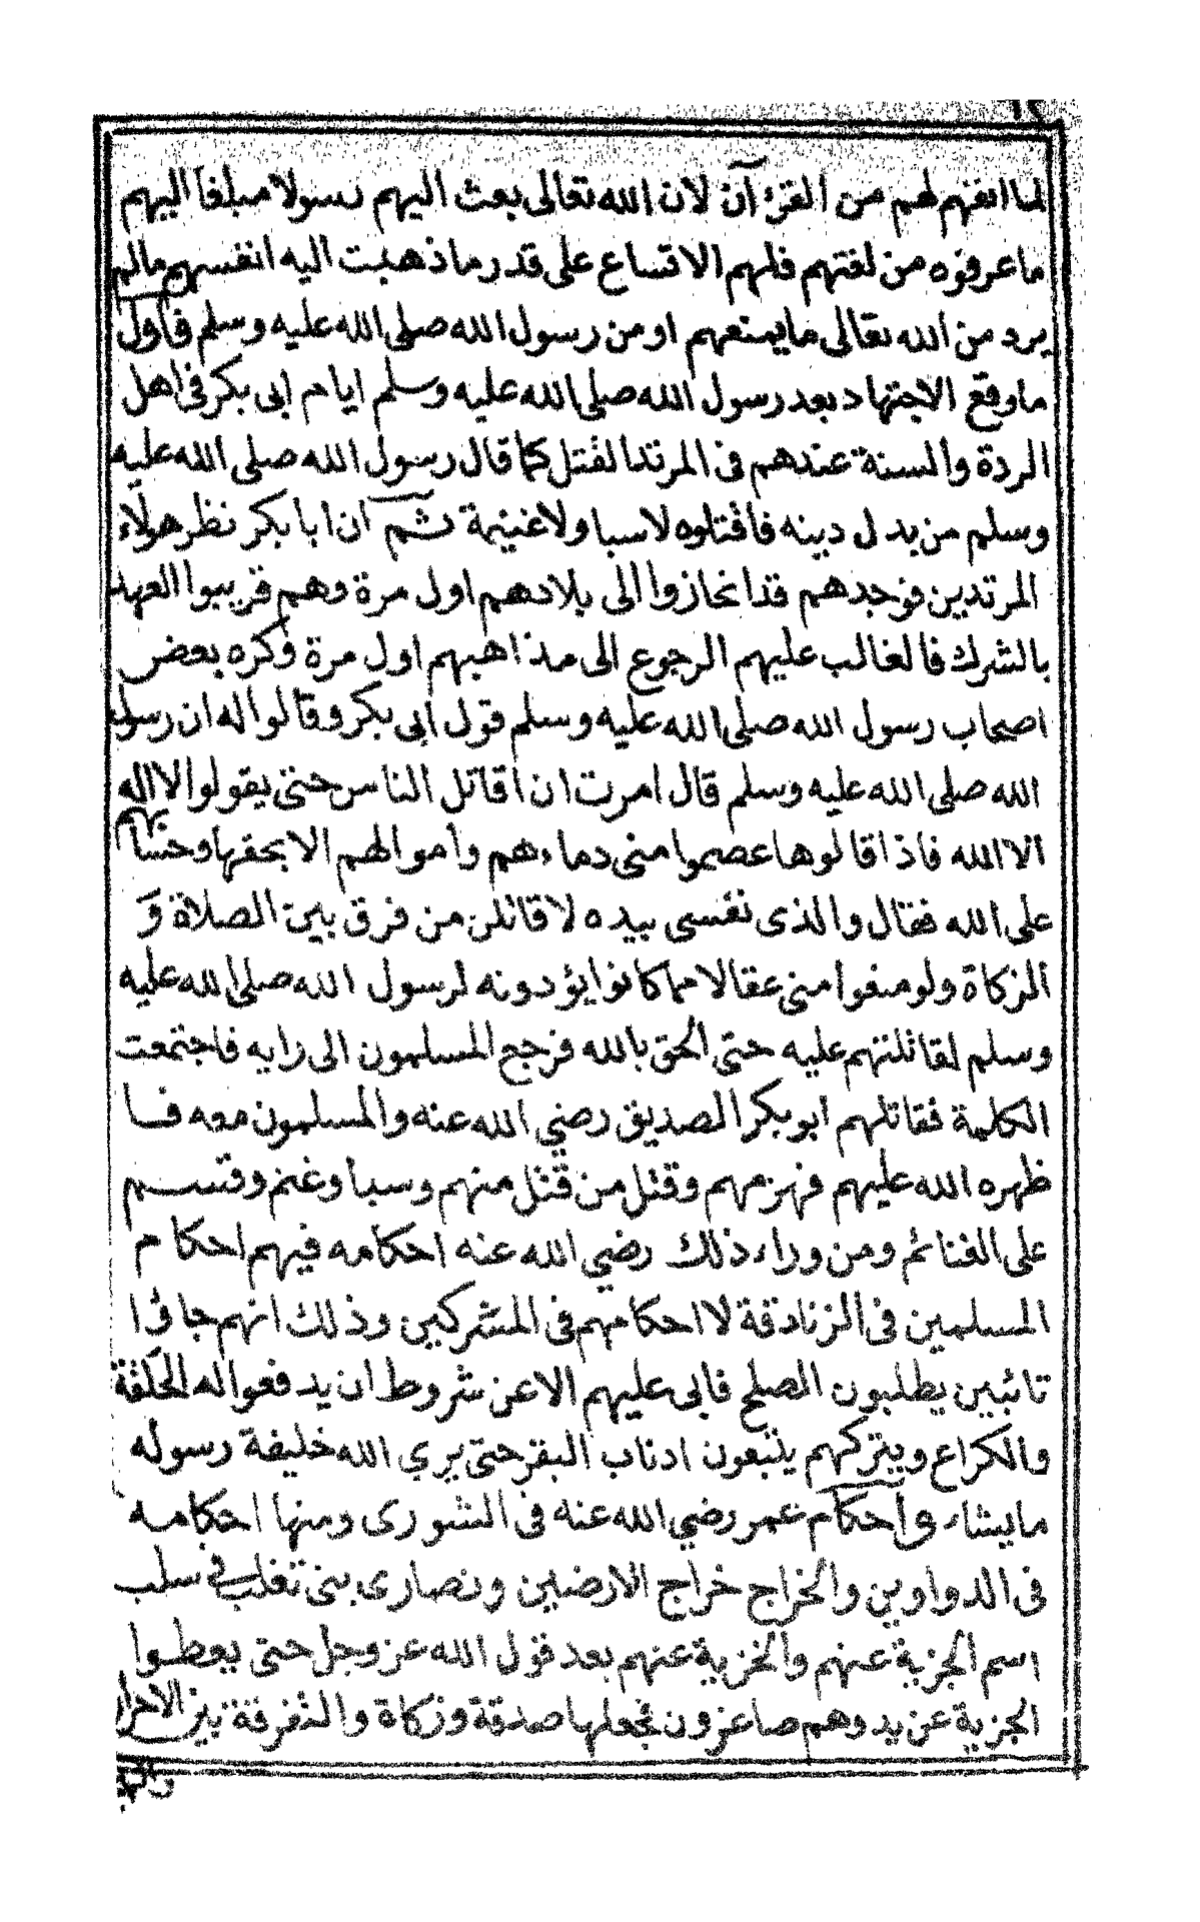 لما انفهم لهم من القرءان لان الله تعالى بعث اليهم رسولا مبلغا اليهم
ما عرفوه من لغتهم فلهم الاتساع على قدر ما ذهبت اليه انفسهم ما لم
يرد من الله تعالى ما يمنعهم او من رسول الله صلى الله عليه وسلم فاول
ما وقع الاجتهاد بعد رسول الله صلى الله عليه وسلم ايام ابى بكر فى اهل
الردة والسنة عندهم فى المرتد القتل كما قال رسول الله صلى الله عليه
وسلم من بدل دينه فاقتلوه لا سبا ولا غنيمة ثم ان ابا بكر نظر هولاء
المرتدين فوجدهم قد انحازوا الى بلادهم اول مرة وهم قريبوا العهد
بالشرك فالغالب عليهم الرجوع الى مذاهبهم اول مرة وكره بعض
اصحاب رسول الله صلى الله عليه وسلم قول ابى بكر وقالوا له ان رسول
الله صلى الله عليه وسلم قال امرت ان اقاتل الناس حتى يقولوا لا اله
الا الله فاذا قالوها عصموا منى دماءهم واموالهم الا بحقها وحسابهم
على الله فقال والذى نفسى بيده لا قاتلن من فرق بين الصلاة و
الزكاة ولو منعوا منى عقالا مما كانوا يؤدونه لرسول الله صلى الله عليه
وسلم لقاتلتهم عليه حتى الحق بالله فرجع المسلمون الى رايه فاجتمعت
الكلمة فقاتلهم ابو بكر الصديق رضي الله عنه والمسلمون معه فا
ظهره الله عليهم فهزمهم وقتل من قتل منهم وسبا وغنم وقسم
على الغنائم ومن وراء ذلك رضي الله عنه احكامه فيهم احكام
المسلمين فى الزنادقة لا احكامهم فى المشركين وذلك انهم جاؤا
تائبين يطلبون الصلح فابى عليهم الا عن شروط ان يدفعوا له الحلقة
والكراع ويتركهم يتبعون اذناب البقر حتى يري الله خليفة رسوله
ما يشاء واحكام عمر رضي الله عنه فى الشورى ومنها احكامه
فى الدواوين والخراج خراج الارضين ونصارى بنى تغلب فى سلب
اسم الجزية عنهم والخزية عنهم بعد قول الله عز وجل حتى يعطوا
الجزية عن يد وهم صاغرون فجعلها صدقة وزكاة والتفرقة بين الاحرار